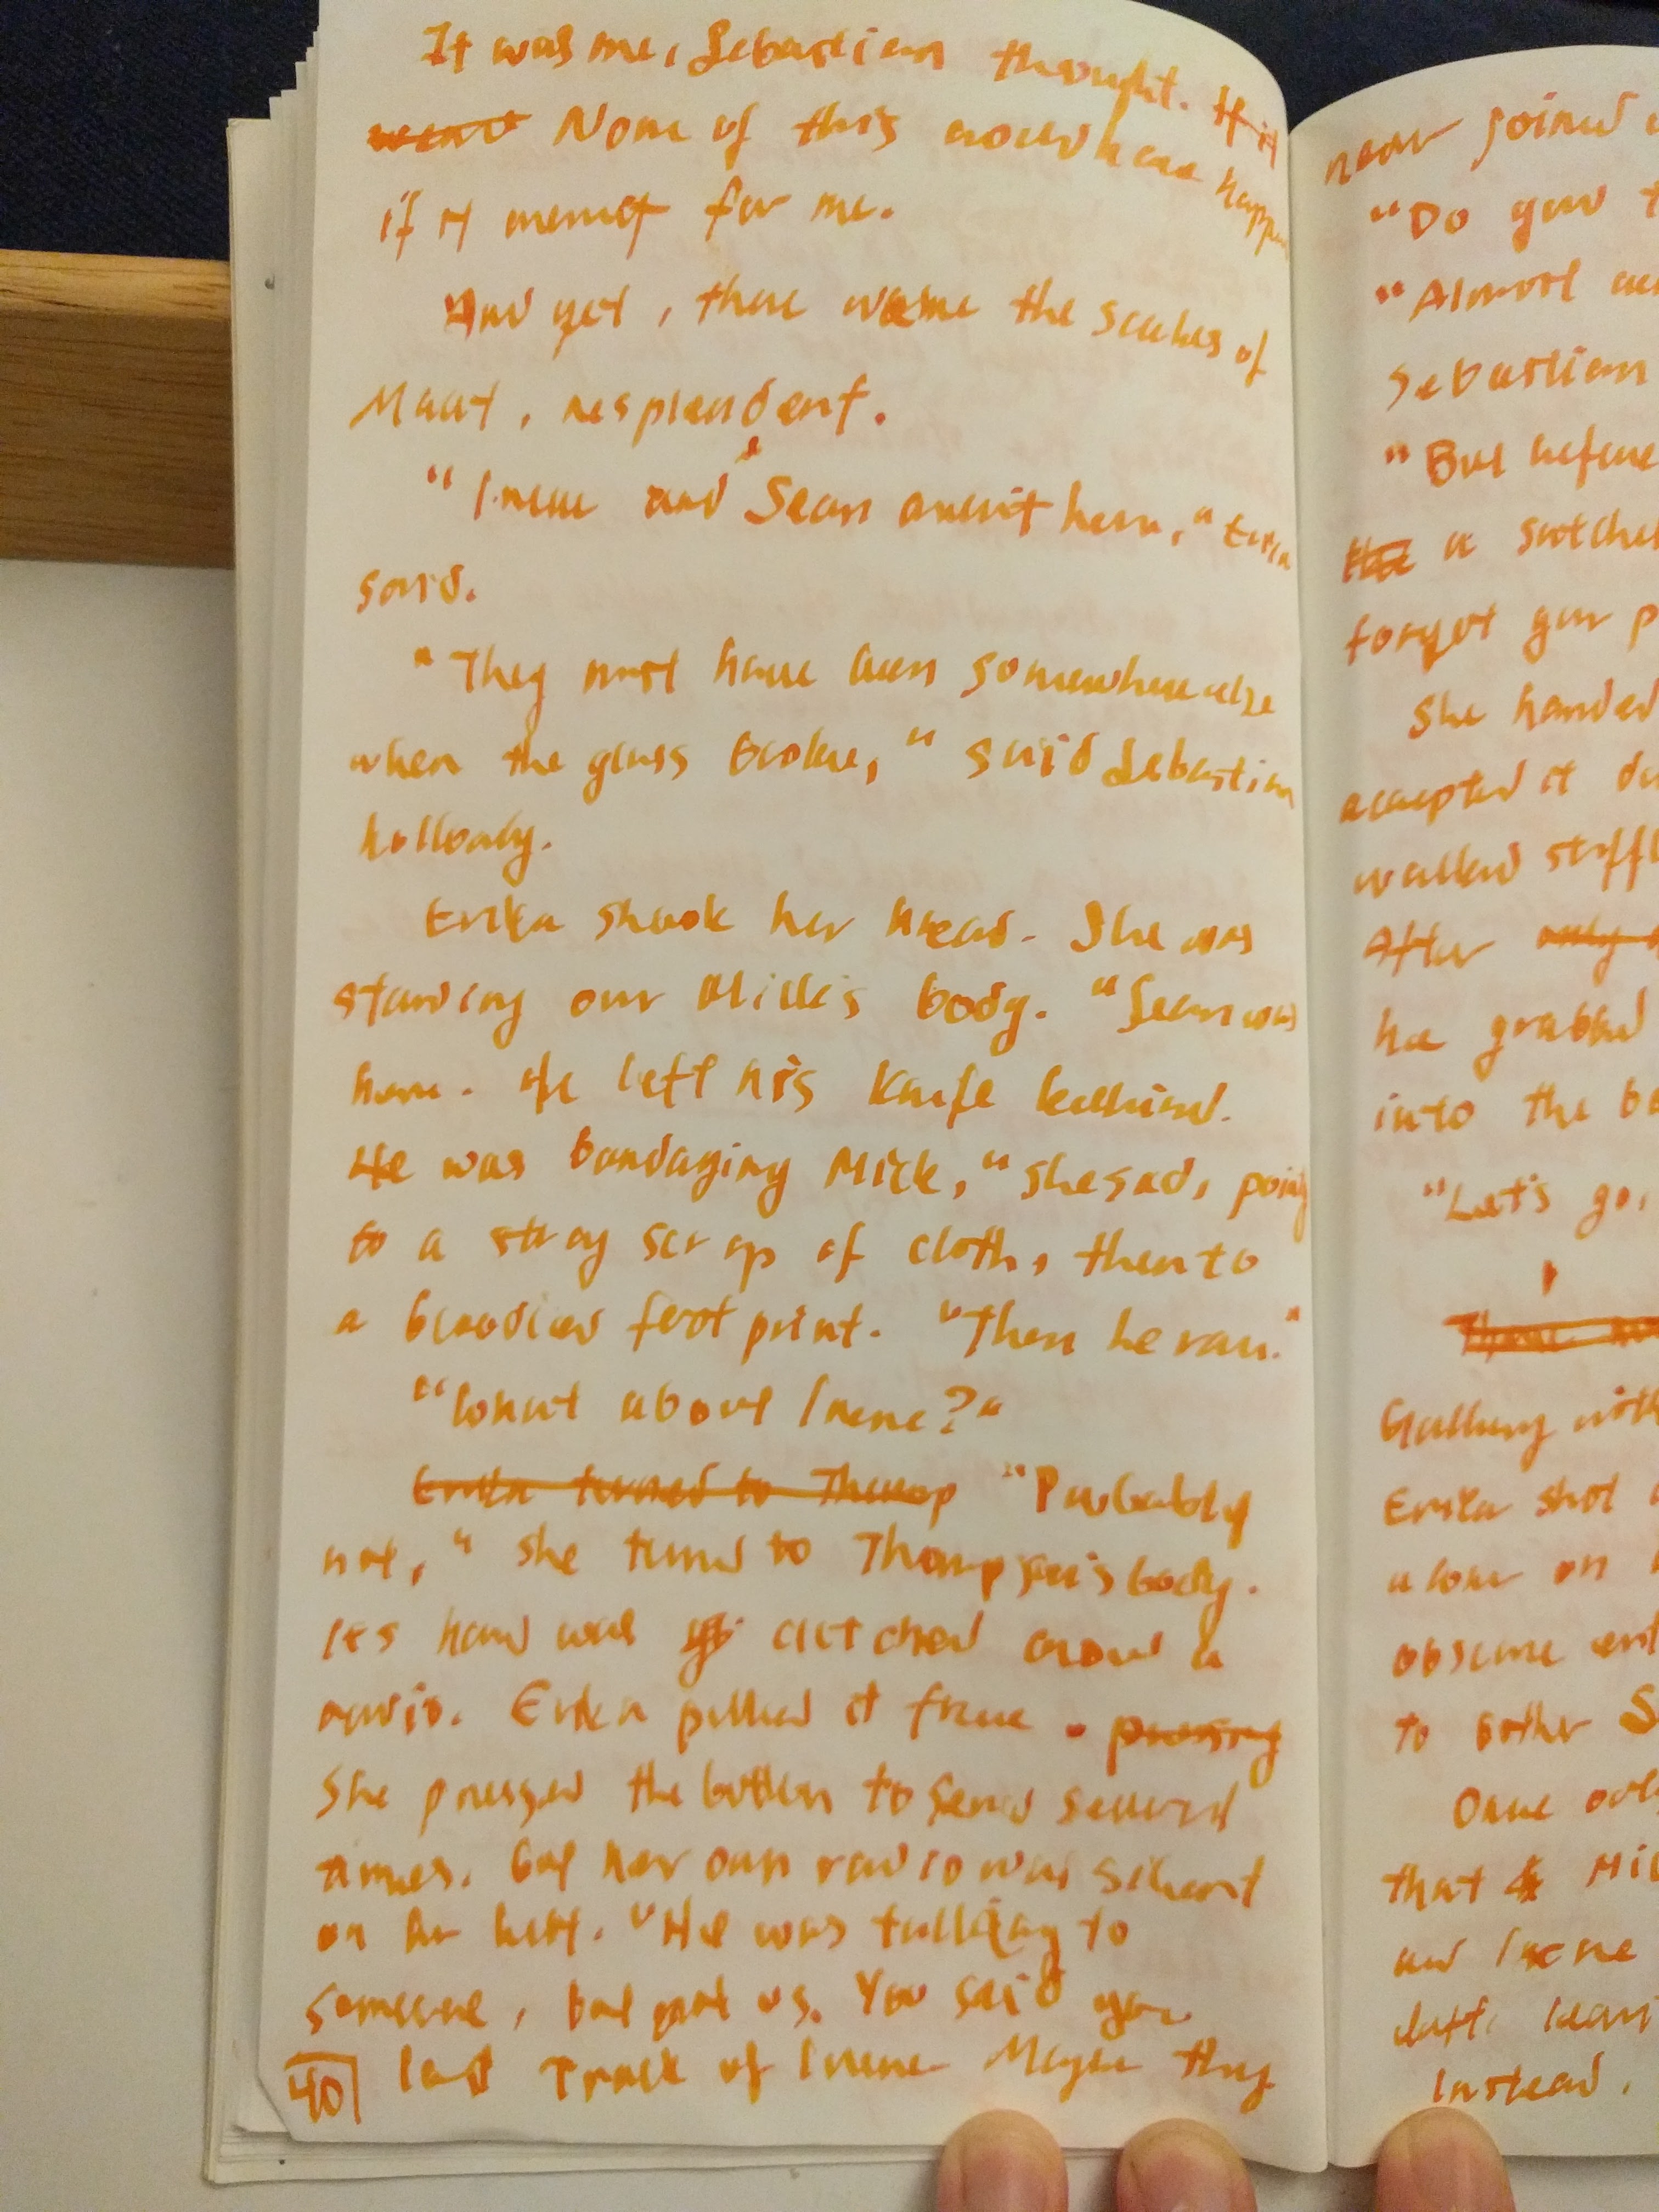 It was me, Sebastian thought. If it
went None of this would have happen
if it weren't for me.
And yet, there were the scales of
Maat, resplendent.
"Irene and Sean aren't here," Erika
said.
"They must have been somewhere else
when the glass broke," said Sebastian
hollowly.
Erika shook her head. She was
standing over Mick's body. "Sean was
here. He left his knife behind.
He was bandaging Mick," she said, pointing
to a stray scrap of cloth, then to
a bloodied footprint. "Then he ran."
"What about Irene?"
Erika turned to Thomp "Probably
not," she turned to Thompson's body.
Its hand was clutched around a
radio. Erika pulled it free. pressing
She pressed the button to send several
times. But her own radio was silent
on her belt. "He was talking to
someone, but not us. You said you
lost track of Irene Maybe they
40
near joined
"Do you t
"Almost
Sebastian
"But before
the a satchel
forget your p
She handed
accepted it
walked stiffl
After only
he grabbed
into the b
"Let's go,
There
Gallery with
Erika shot
alone on
obscure ent
to bother S
Once out
that Mi
and Irene
left. Sean
Instead,